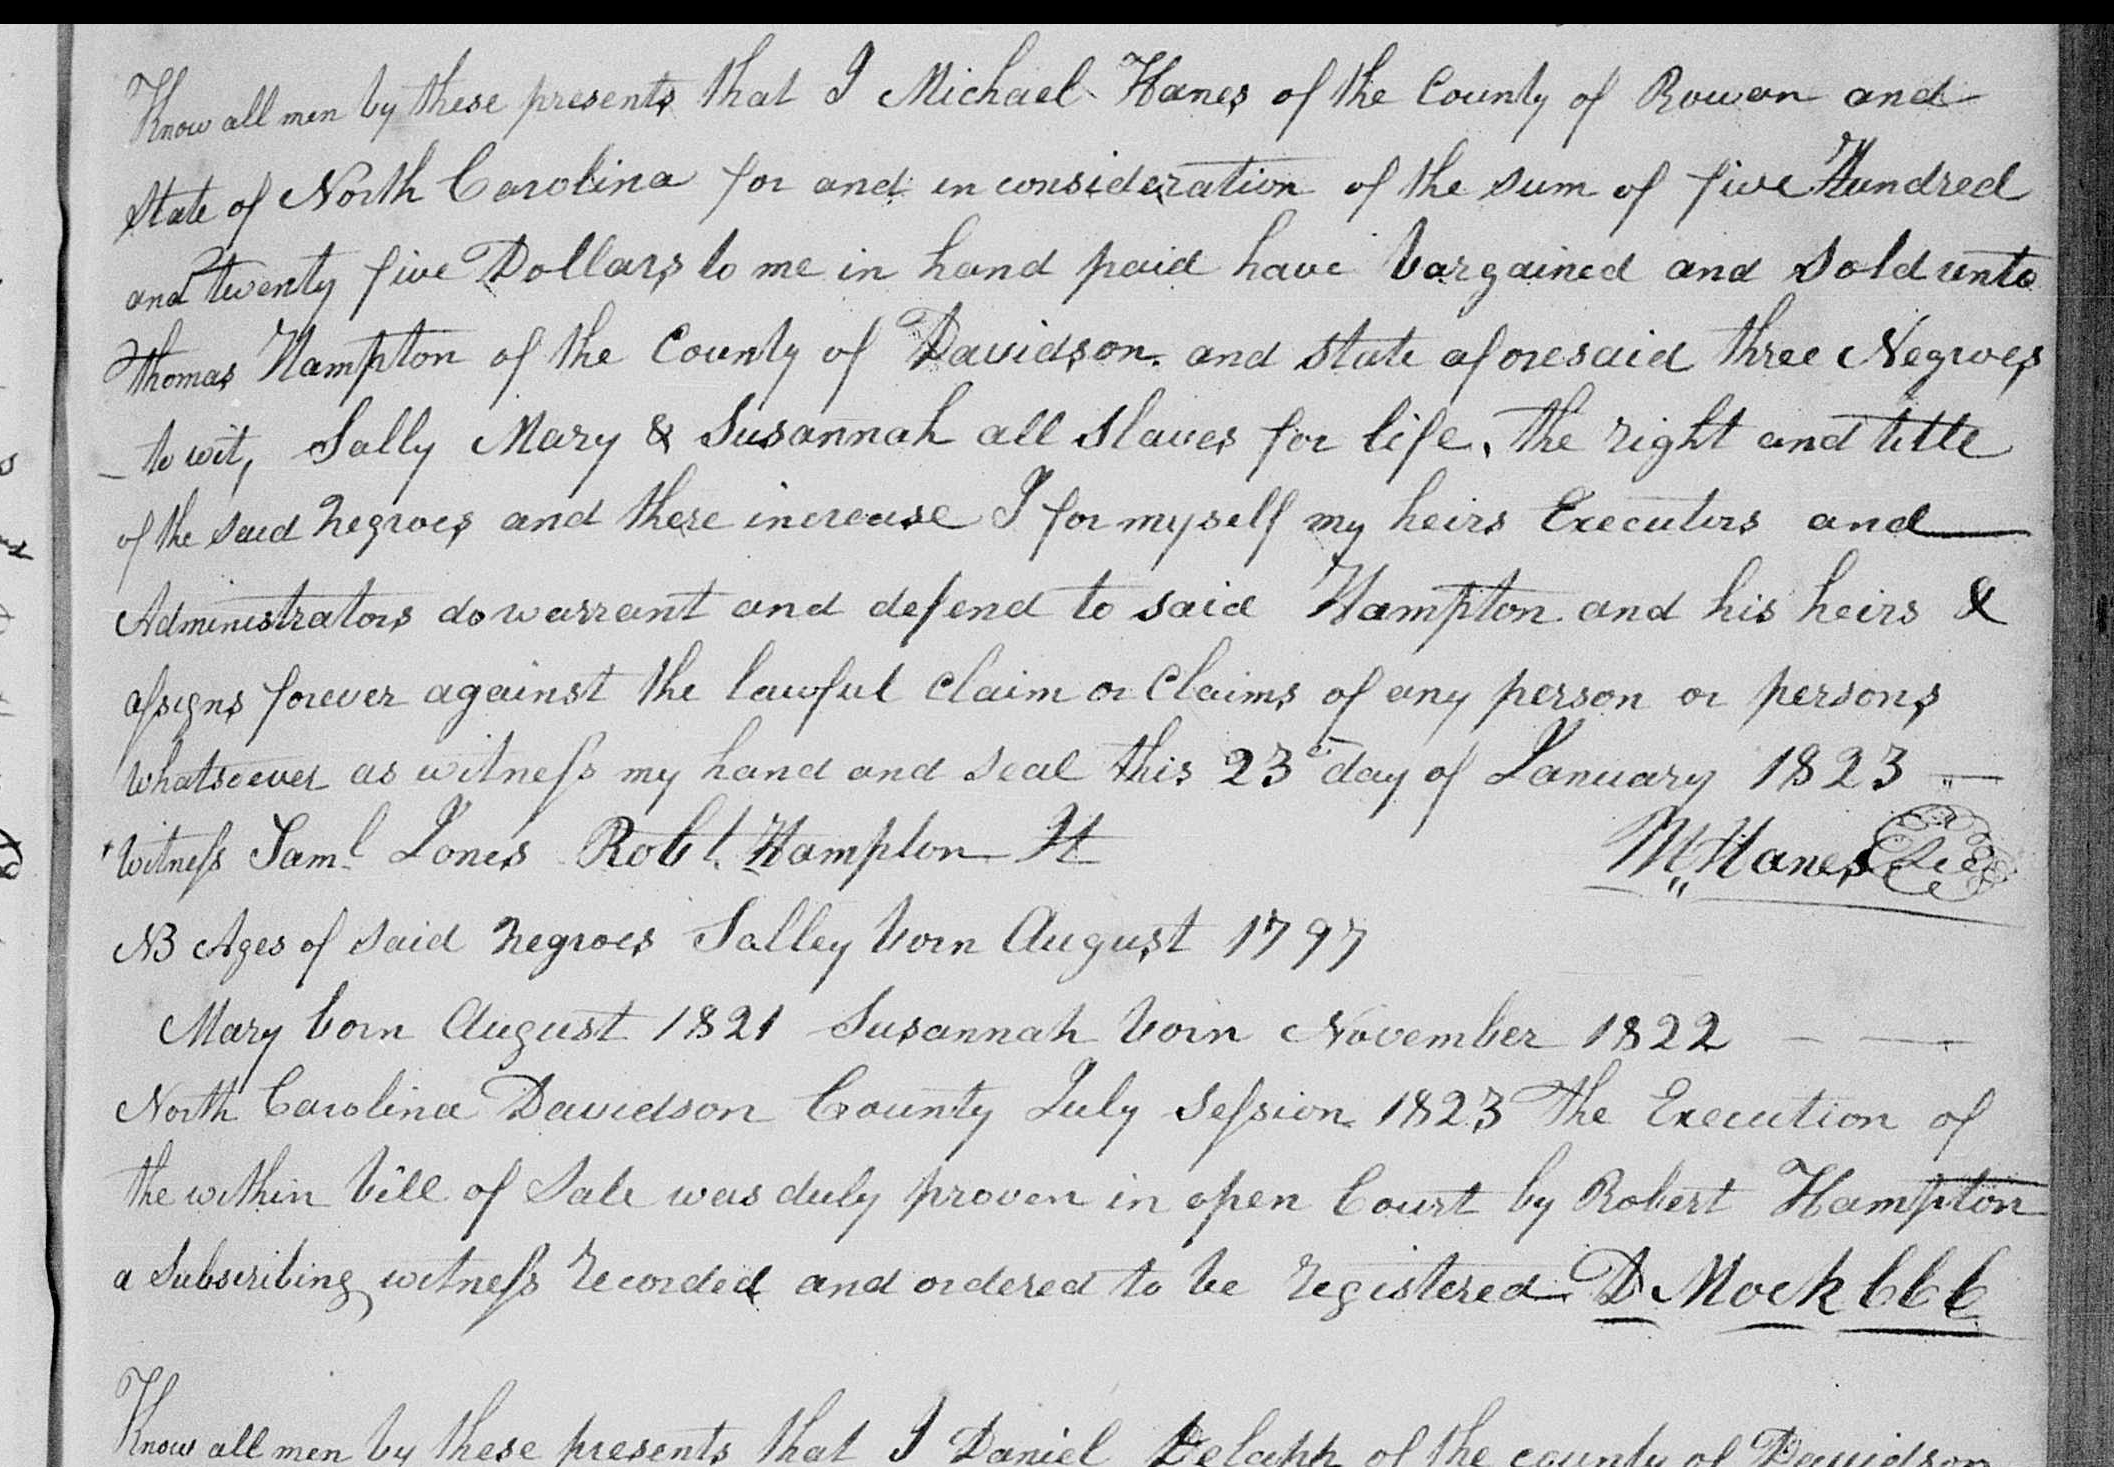 Know all men by these presents that I Michael Hanes of the County of Rowan and
State of North Carolina for and in consideration of the sum of five Hundred
and twenty five Dollars to me in hand paid have bargained and sold unto
Thomas Hampton of the County of Davidson. and State aforesaid three Negroes
to wit, Sally Mary & Susannah all Slaves for life. The right and title
of the said Negroes and there increase I for myself my heirs Executors and
Administrators do warrant and defend to said Hampton and his heirs &
assigns forever against the lawful claim or claims of any person or persons
whatsoever as witness my hand and seal this 23 day of January 1823
Witness Saml Jones Robt. Hampton Jt
M Hanes
NB Ages of said negroes Salley born August 1797
Mary born August 1821 Susannah born November 1822
North Carolina Davidson County July Session 1823 The Execution of
the within bill of Sale was duly proven in open Court by Robert Hampton
a Subscribing witness recorded and ordered to be registered D Mock CCC
Know all men by these presents that I Daniel Delapp of the county of Davidson